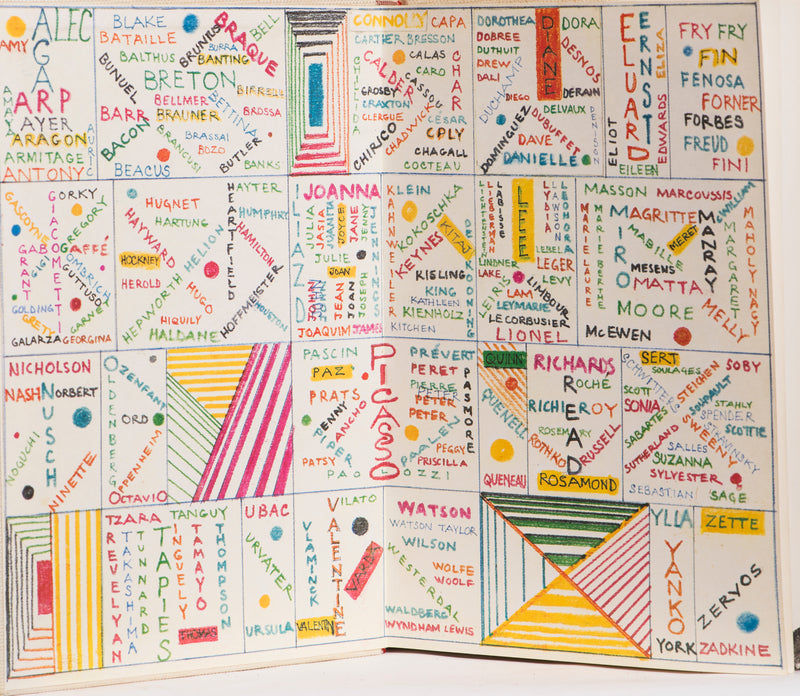 ALEC
AGA
AMY
AMAYA
ARP
AYER
ARAGON
ARMITAGE
ANTONY
AURIC
BLAKE
BATAILLE
BRUNIUS
BRAQUE
BELL
BALTHUS
BURRA
BANTING
BUNUEL
BRETON
BIRREDE
BELLMER
BETTINA
BARR
BRAUNER
BROSSA
BACON
BRANCUSI
BRASSAI
BOZO
BUTLER
BEACUS
BANKS
CONNOLLY
CAPA
CARTIER BRESSON
CHILLIDA
CALDER
CALAS
CARO
CHAR
CROSBY
CASSOU
CRAXTON
CLERGUE
CHADWICK
CÉSAR
CPLY
CHIRICO
CHAGALL
COCTEAU
DOROTHEA
DIANE
DORA
DOBREE
DUTHUIT
DREW
DALI
DESNOS
DUCHAMP
DIEGO
DERAIN
DELVAUX
DENISON
DOMINGUEZ
DUBUFFET
DAVE
DANIELLE
ELUARD
ERNST
ELIZA
EDWARDS
ELIOT
EILEEN
FRY FRY
FIN
FENOSA
FORNER
FORBES
FREUD
FINI
GORKY
GASCOYNE
GIACOMETTI
GREGORY
GABO
GAFFÉ
GIGI
GOMBRICH
GUTTUSO
GOLDING
GRETY
GARNER
GALARZA
GEORGINA
HUGNET
HEARTFIELD
HAYTER
HARTUNG
HUMPHRY
HAYWARD
HELION
HAMILTON
HOCKNEY
HEROLD
HUGO
HEPWORTH
HIQUILY
HOFFMEISTER
HOUSTON
HALDANE
ILIAZD
JOANNA
JULIA
JASIA
JUANITA
JOYCE
JANE
JENNY
JENNINGS
JULIE
JOAN
JOHN
JOHN
JEAN
JOAN
JOSEPH
JOAQUIM
JAMES
KLEIN
KAHNWEILER
KOKOSCHKA
KEYNES
KITAJ
DE KOONING
KISLING
KING
KATHLEEN
KIENHOLZ
KITCHEN
LICHTENSTEIN
LIEBERMAN
LABISSE
LEE
LYDIA
LAWSON
LEONOR
LEBEL
LINDNER
LEGER
LAKE
LEVY
LEIRIS
LIMBOUR
LAM
LEYMARIE
LECORBUSIER
LIONEL
MASSON
MARCOUSSIS
MCWILLIAM
MARIELAURE
MARIEBERTHE
MIRO
MAGRITTE
MANRAY
MABILLE
MERET
MARGARET
MAHOLY NAGY
MESENS
MATTA
MOORE
MELLY
McEWEN
NICHOLSON
NASH
NUSCH
NORBERT
NOGUCHI
NINETTE
OLDENBERG
OZENFANT
ORD
OPPENHEIM
OCTAVIO
PASCIN
PAZ
PICASSO
PRÉVERT
PERET
PRATS
PIERRE
PETER
PETER
PASMORE
PENNY
PANCHO
PIPER
PAALEN
PEGGY
PATSY
PRISCILLA
PAOLOZZI
QUINN
QUENELL
QUENEAU
RICHARDS
READ
ROCHÉ
RICHIER
ROY
ROSEMARY
ROTHKO
RUSSELL
ROSAMOND
SERT
SCHWITTERS
SOULAGES
SOBY
STEICHEN
SCOTT
SOUPAULT
SONIA
STAHLY
SPENDER
SABARTES
STRAVINSKY
SCOTTIE
SWEENY
SUTHERLAND
SALLES
SUZANNA
SYLVESTER
SEBASTIAN
SAGE
TZARA
TANGUY
TREVELYAN
TAKASHIMA
TUNNARD
TAPIES
TINGUELY
TAMAYO
THOMPSON
THOMAS
UBAC
URVATER
URSULA
VILATO
VALENTINE
VLAMINCK
VAREN
VALENTIN
WATSON
WATSON TAYLOR
WILSON
WOLFE
WOOLF
WESTERDAL
WALDBERG
WYNDHAM LEWIS
YLLA
YANKO
YORK
ZETTE
ZERVOS
ZADKINE